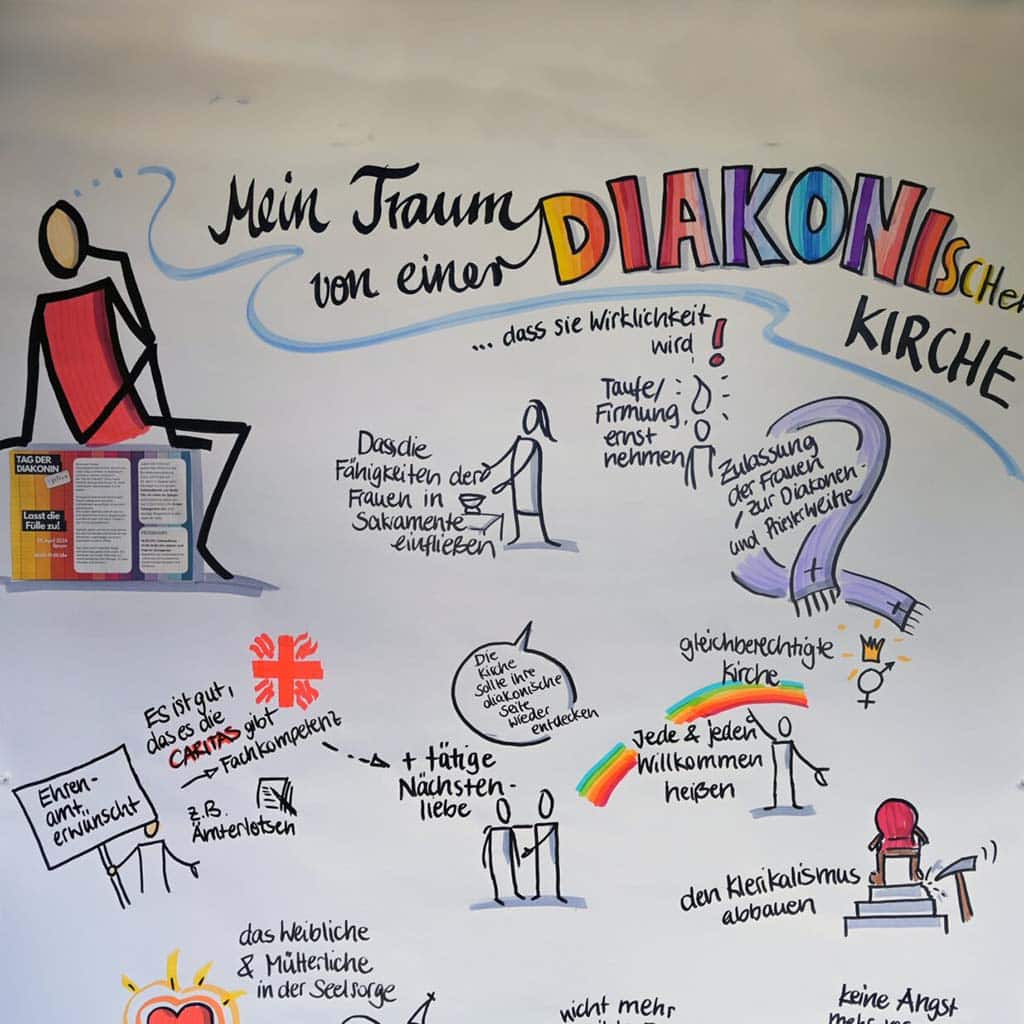 Mein Traum
von einer DIAKONISCHEN
KIRCHE
... dass sie Wirklichkeit
wird !
Taufe/
Firmung
ernst
nehmen
Dass die
Fähigkeiten der
Frauen in
Sakramente
einfließen
Zulassung
der Frauen
zur Diakonen-
und Priesterweihe
TAG DER
DIAKONIN
plus
Lasst die
Fülle zu!
gleichberechtigte
Kirche
Die
Kirche
sollte ihre
diakonische
Seite
wieder
entdecken
Es ist gut,
das es die
CARITAS gibt
→ Fachkompetenz
z.B.
Ämterlotsen
Ehren-
amt
erwünscht
+ tätige
Nächsten-
liebe
Jede & jeden
Willkommen
heißen
den Klerikalismus
abbauen
das Weibliche
& Mütterliche
in der Seelsorge
nicht mehr
keine Angst
mehr